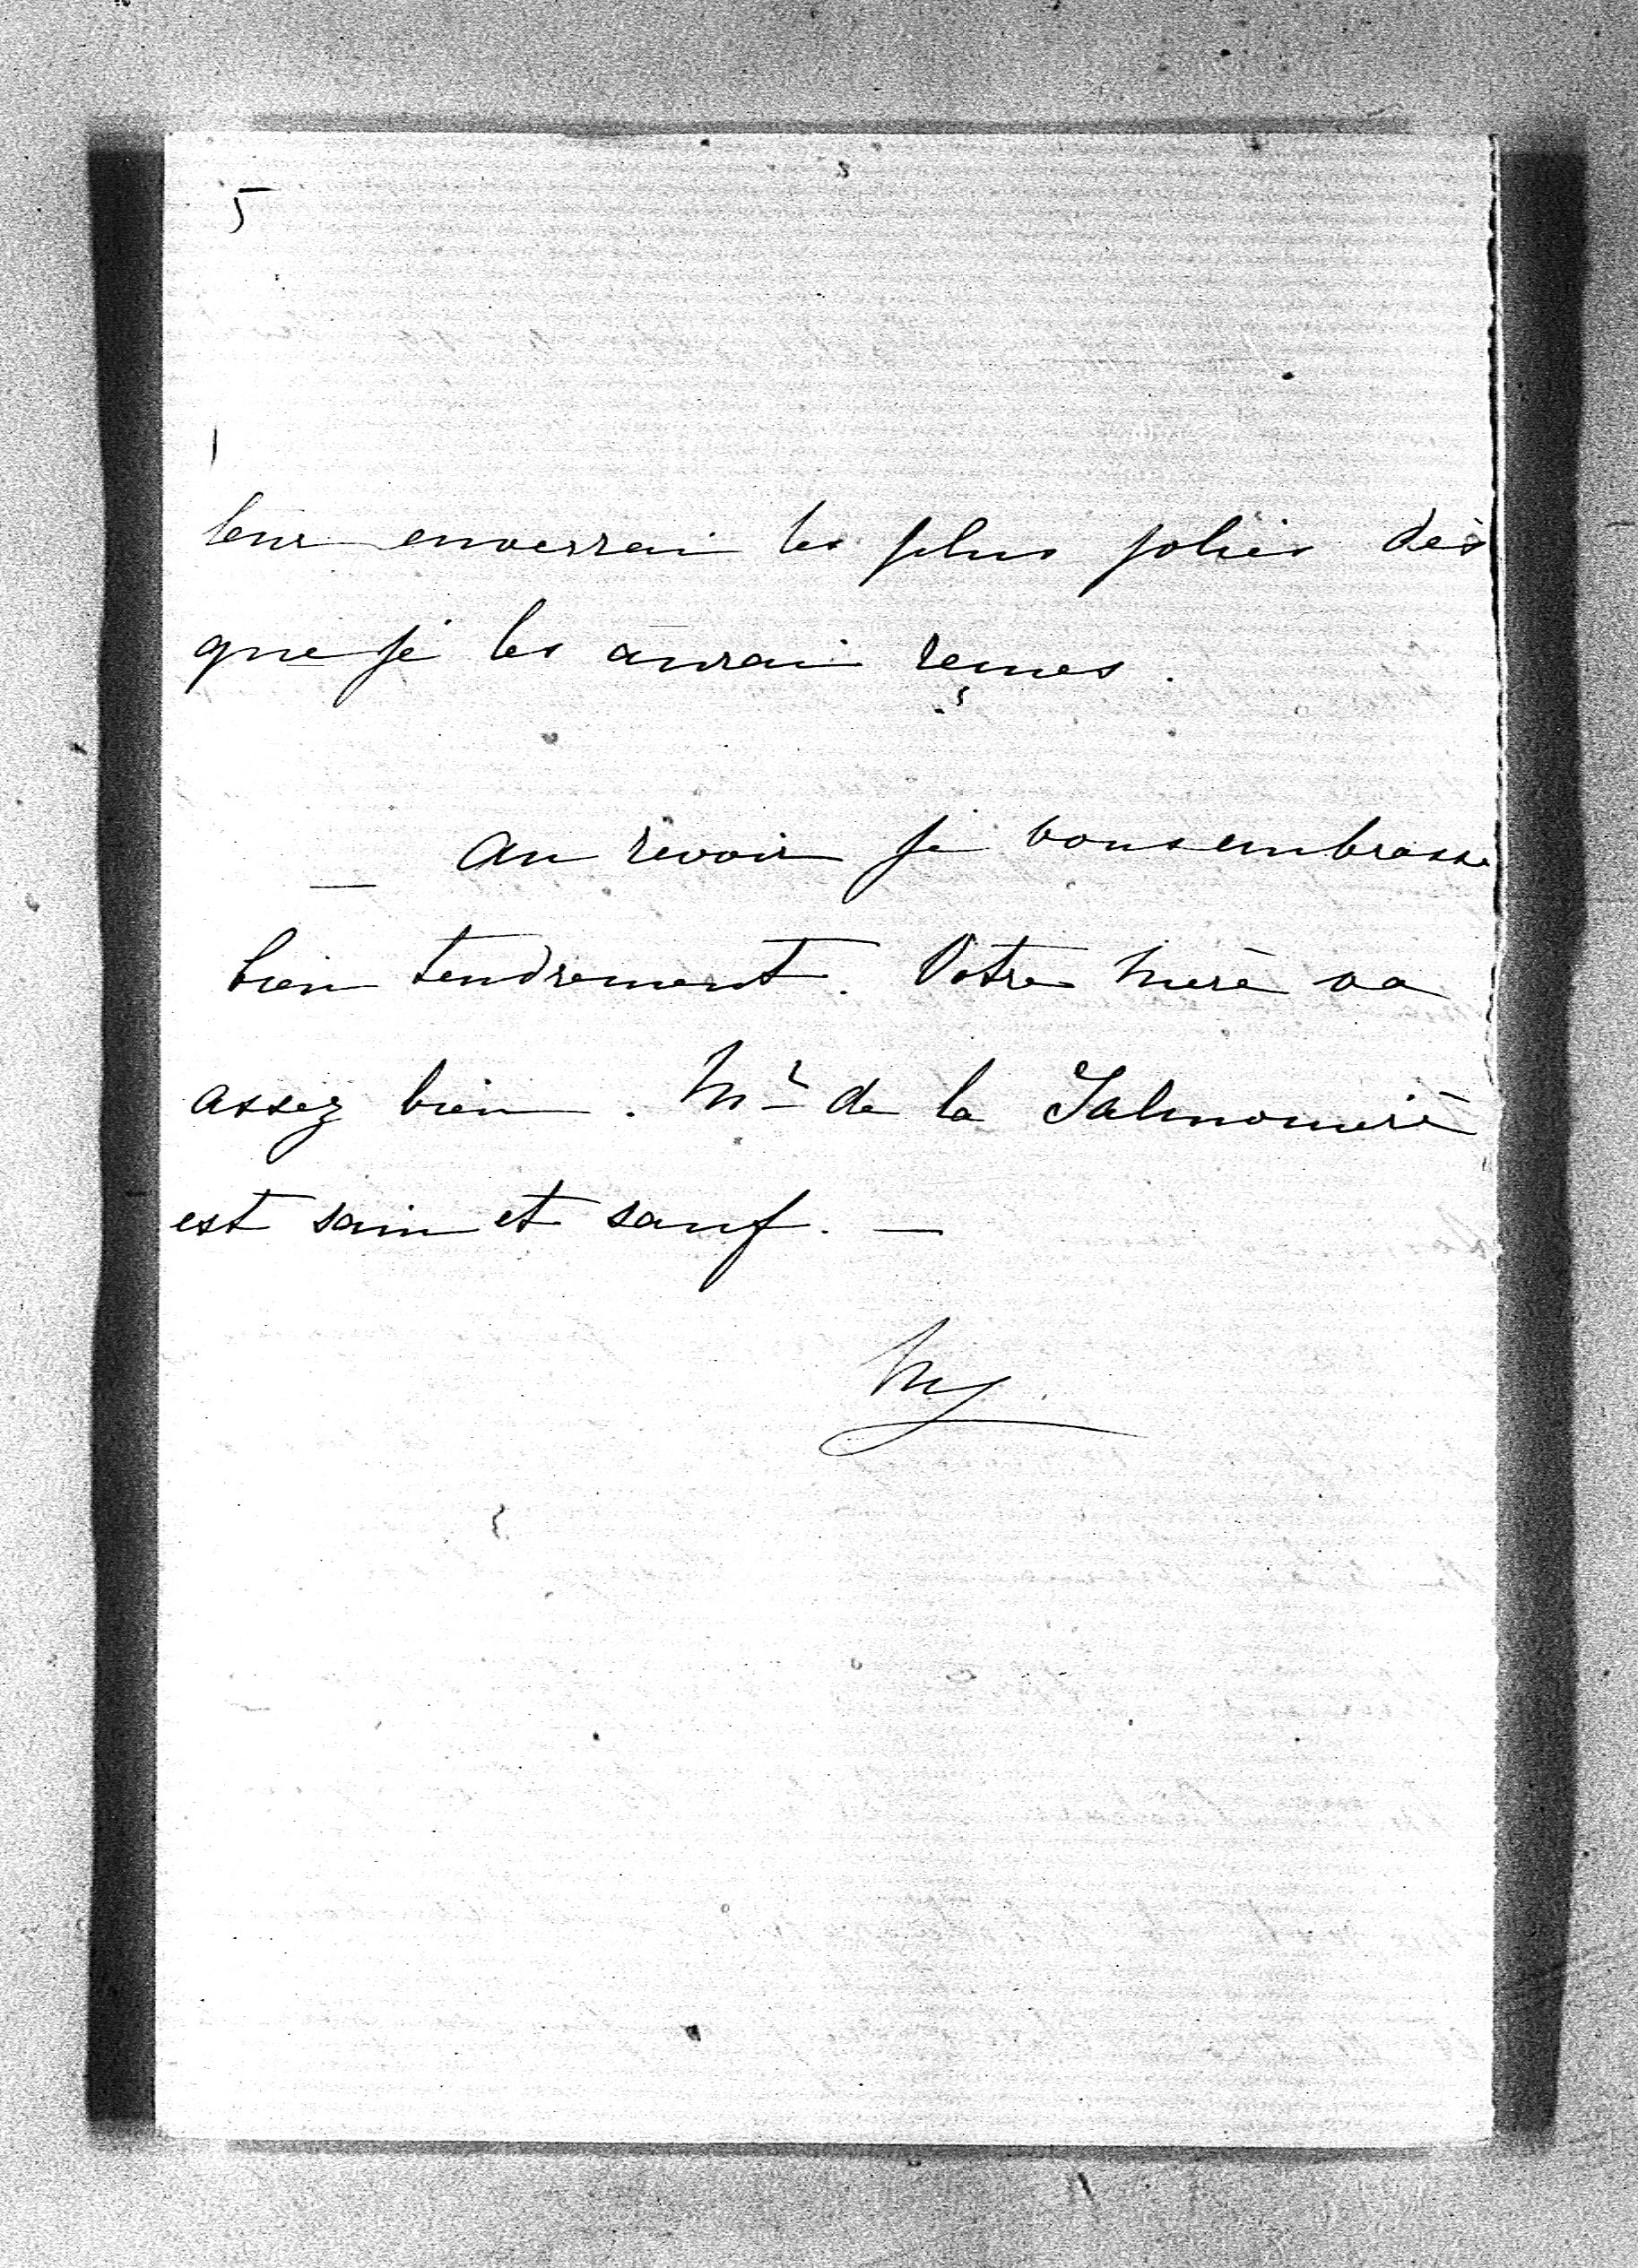 5
leur enverrai les plus jolies dès
que je les aurai reçues.
— au revoir je vous embrasse
bien tendrement. Votre mère va
assez bien. Mr de la
est sain et sauf. —